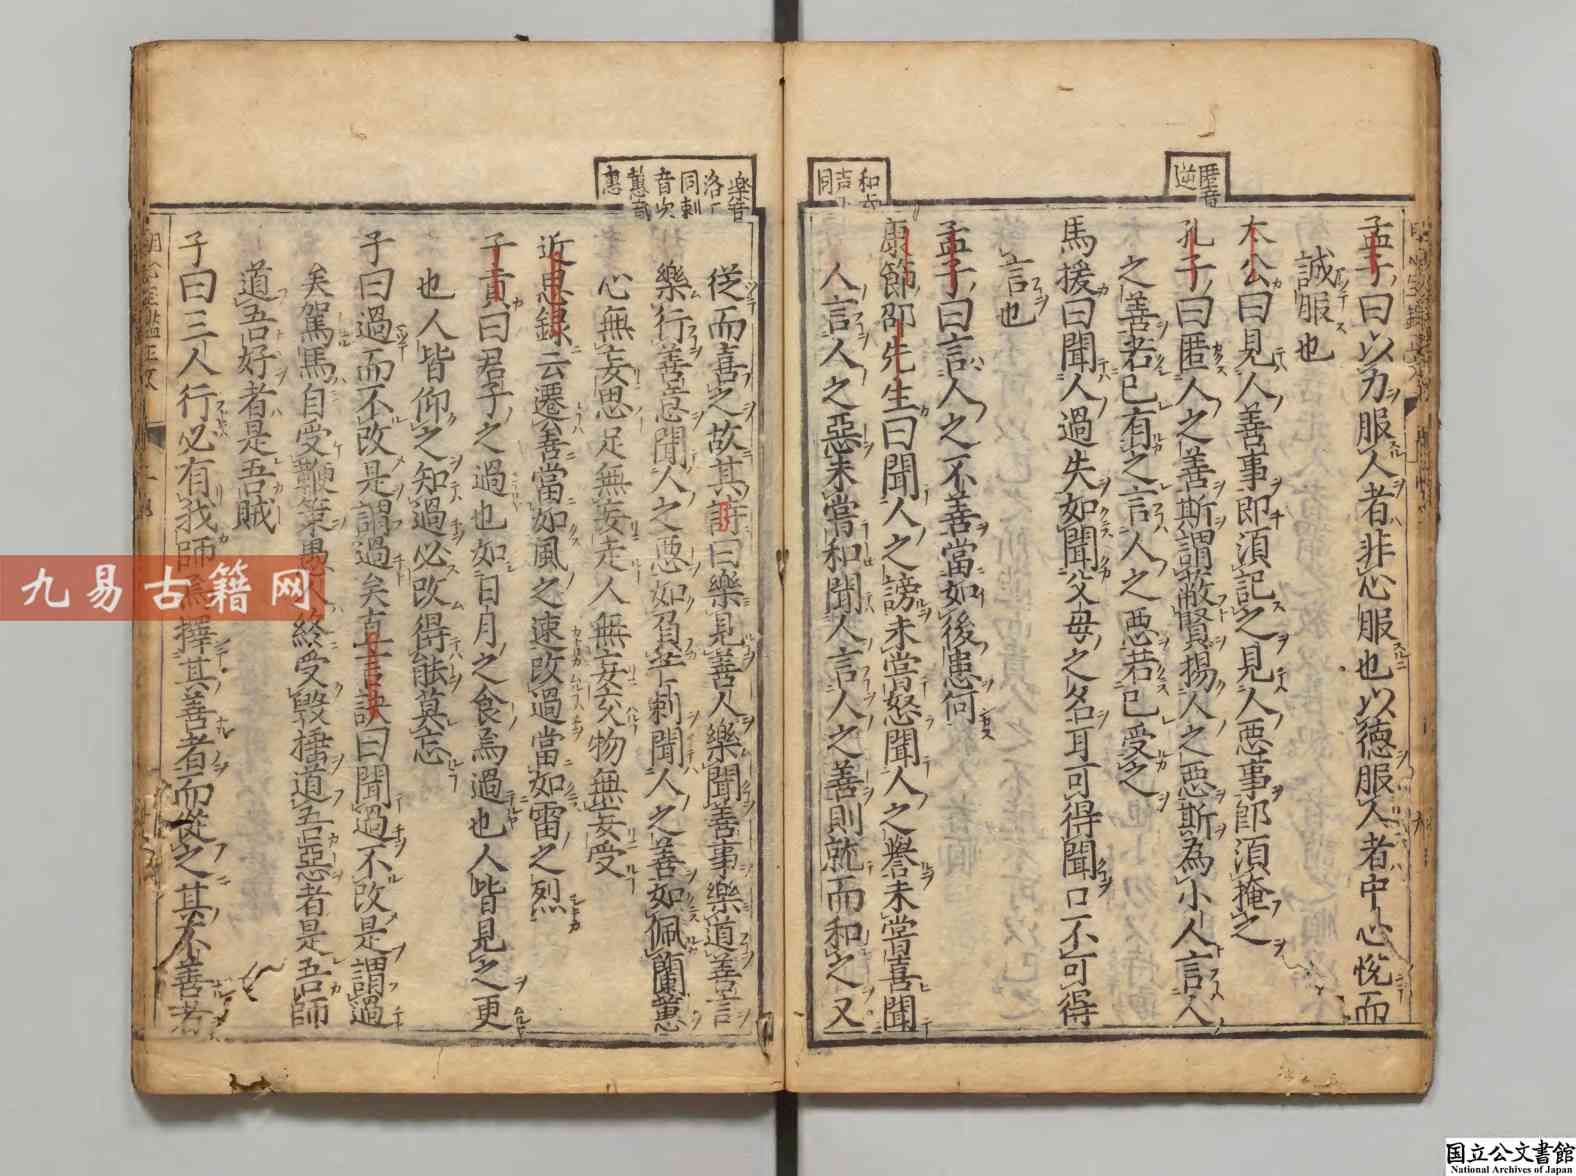 孟子曰以力服人者非心服也以德服人者中心悅而
誠服也
太公曰見人善事即須記之見人惡事即須掩之
孔子曰匿人之善斯謂蔽賢揚人之惡斯為小人言人
之善若已有之言人之惡若已受之
馬援曰聞人過失如聞父母之名耳可得聞口不可得
言也
孟子曰言人之不善當如後患何
康節邵先生曰聞人之謗未嘗怒聞人之譽未嘗喜聞
人言人之惡未嘗和聞人言人之善則就而和之又
從而喜之故其詩曰樂見善人樂聞善事樂道善言
樂行善意聞人之惡如負芒刺聞人之善如佩蘭蕙
心無妄思足無妄走人無妄交物無妄受
近思録云遷善當如風之速改過當如雷之烈
子貢曰君子之過也如日月之食焉過也人皆見之更
也人皆仰之知過必改得能莫忘
子曰過而不改是謂過矣直言訣曰聞過不改是謂過
矣駑馬自受鞭策愚人終受毀捶道吾惡者是吾師
道吾好者是吾賊
子曰三人行必有我師焉擇其善者而從之其不善者
匿音
逆
和去
声
同
樂音
洛下
同刺
音次
蕙音
惠
九易古籍网
国立公文書館
National Archives of Japan